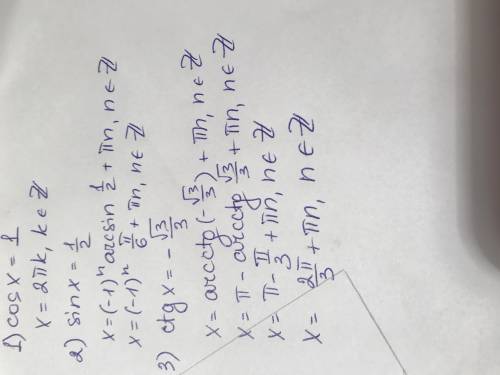 1) cos x = 1
x = 2πk, k ∈ ℤ
2) sin x = 1/2
x = (-1)ⁿ arcsin 1/2 + πn, n ∈ ℤ
x = (-1)ⁿ π/6 + πn, n ∈ ℤ
3) ctg x = -√3/3
x = arcctg (-√3/3) + πn, n ∈ ℤ
x = π - arcctg √3/3 + πn, n ∈ ℤ
x = π - π/3 + πn, n ∈ ℤ
x = 2π/3 + πn, n ∈ ℤ